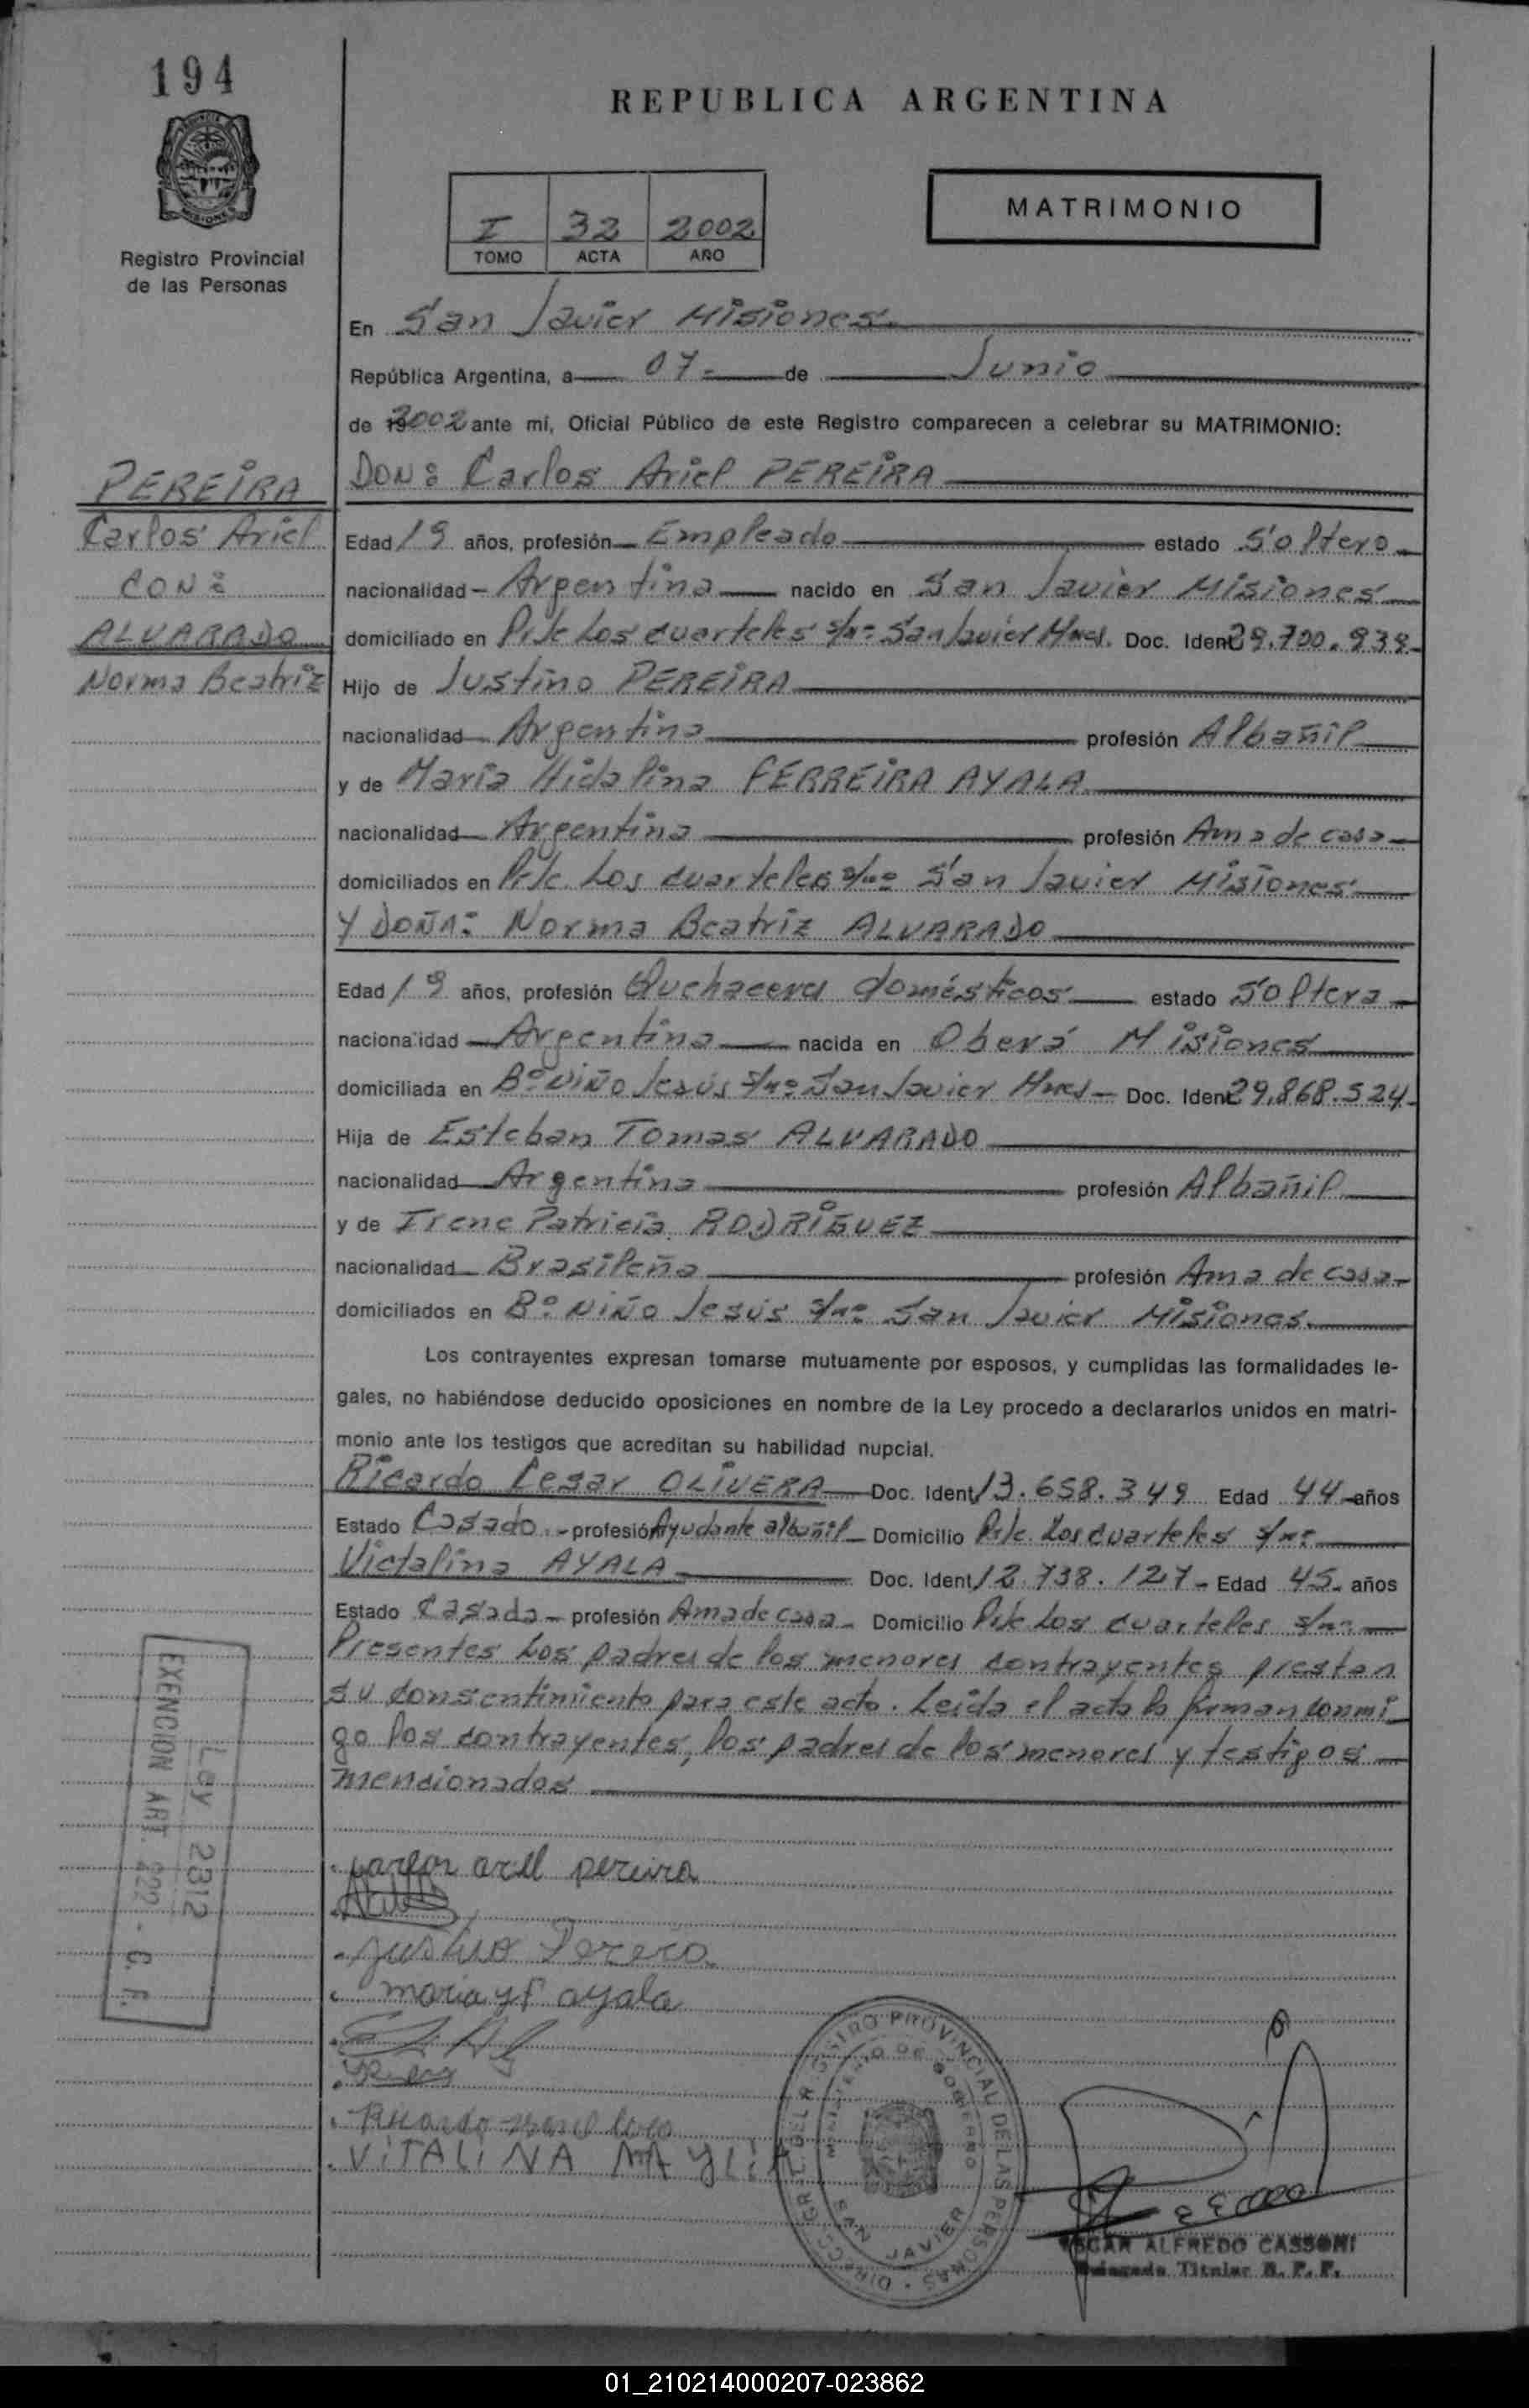 194
REPUBLICA ARGENTINA
MISIONES
Registro Provincial
de las Personas
I 32 2002
TOMO ACTA AÑO
MATRIMONIO
En San Javier Misiones
República Argentina, a 07- de Junio
de 2002 ante mí, Oficial Público de este Registro comparecen a celebrar su MATRIMONIO:
PEREIRA
Carlos Ariel
CON:
ALVARADO
Norma Beatriz
DON: Carlos Ariel PEREIRA
Edad 19 años, profesión Empleado estado Soltero
nacionalidad Argentina nacido en San Javier Misiones
domiciliado en Pje Los cuarteles s/nº San Javier Mnes. Doc. Ident 29.700.939-
Hijo de Justino PEREIRA
nacionalidad Argentina profesión Albañil
y de María Hidalina FERREIRA AYALA
nacionalidad Argentina profesión Ama de casa
domiciliados en Pje. Los cuarteles s/nº San Javier Misiones
Y DOÑA: Norma Beatriz ALVARADO
Edad 19 años, profesión Quehaceres domésticos estado Soltera
nacionalidad Argentina nacida en Oberá Misiones
domiciliada en Bº Niño Jesús s/nº San Javier Mnes Doc. Ident 29.868.524-
Hija de Esteban Tomas ALVARADO
nacionalidad Argentina profesión Albañil
y de Irene Patricia RODRIGUEZ
nacionalidad Brasileña profesión Ama de casa
domiciliados en Bº Niño Jesús s/nº San Javier Misiones
Los contrayentes expresan tomarse mutuamente por esposos, y cumplidas las formalidades le-
gales, no habiéndose deducido oposiciones en nombre de la Ley procedo a declararlos unidos en matri-
monio ante los testigos que acreditan su habilidad nupcial.
Ricardo Cesar OLIVERA Doc. Ident 13.658.349 Edad 44 años
Estado Casado profesión Ayudante albañil Domicilio Pje. Los cuarteles s/nº
Victalina AYALA Doc. Ident 12.738.127 Edad 45 años
Estado Casada profesión Ama de casa Domicilio Pje Los cuarteles s/nº
Presentes Los padres de los menores contrayentes prestan
su consentimiento para este acto. Leida el acta la firman conmi
go los contrayentes, los padres de los menores y testigos
mencionados
EXENCION ART. 222 - C. F.
Ley 2312
carlos ariel pereira
Justino Pereira
maria y f ayala
Ricardo
VITALINA
REGISTRO PROVINCIAL DE LAS PERSONAS
MINISTERIO DE GOBIERNO
SAN JAVIER
OSCAR ALFREDO CASSONI
Delegado Titular R. P. P.
01_210214000207-023862